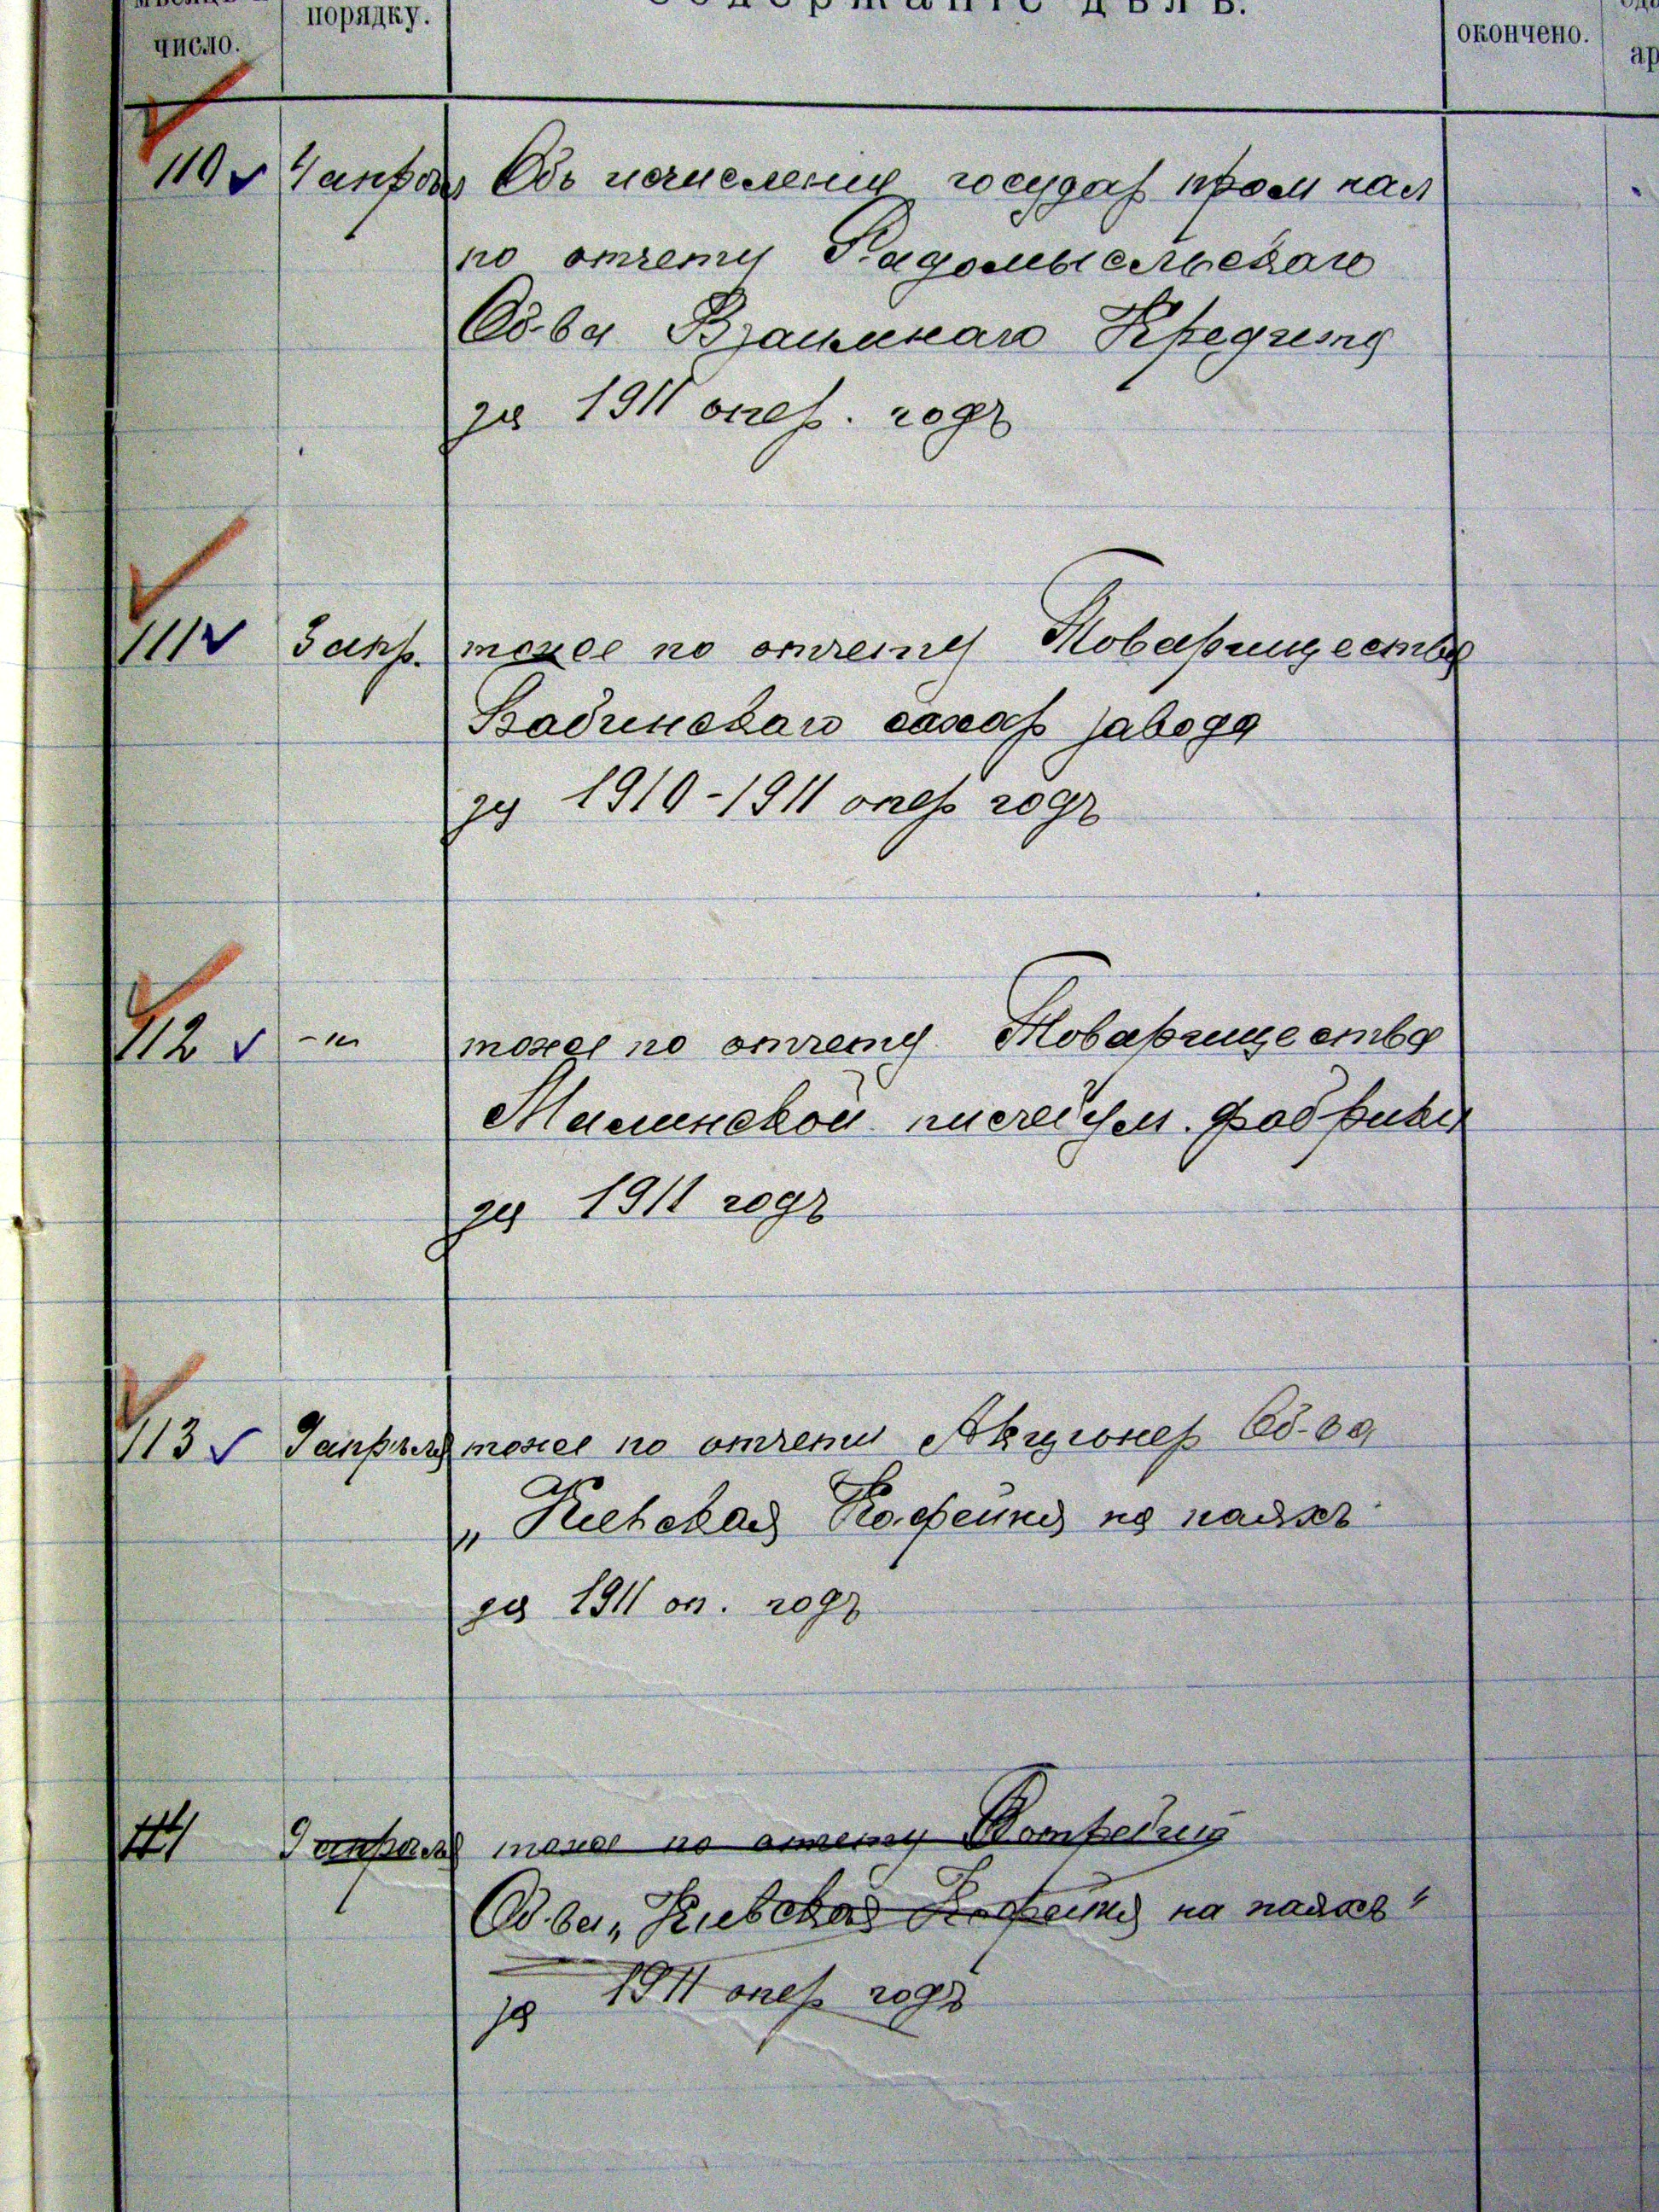 мѣсяцъ и
число.
порядку.
Содержаніе дѣлъ.
окончено.
110 4 апрѣля Объ исчисленіи государ пром нал
по отчету Радомысльскаго
Об-ва Взаимнаго Кредита
за 1911 опер. годъ
111 3 апр. тоже по отчету Товарищества
Бабинскаго сахар завода
за 1910-1911 опер годъ
112 -"- тоже по отчету Товарищества
Малинской писчебум. фабрики
за 1911 годъ
113 9 апрѣля тоже по отчету Акціонер Об-ва
„Кіевская Кофейня на паяхъ
за 1911 оп. годъ
9 апрѣля тоже по отчету
Об-ва „Кіевская Кофейня на паяхъ"
за 1911 опер годъ